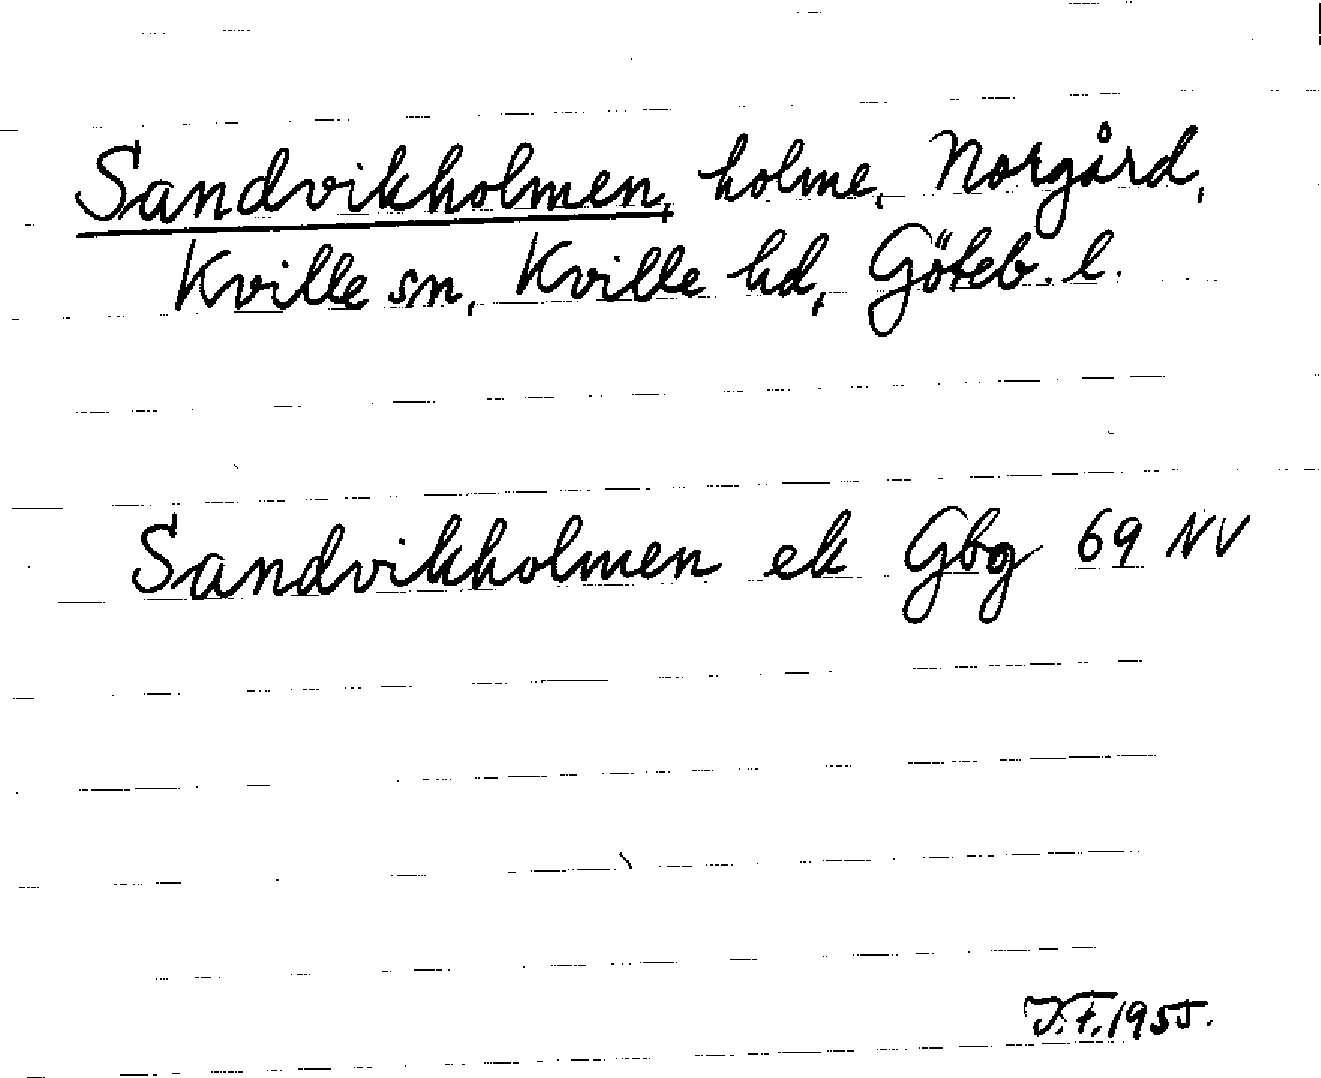 Sandvikholmen, holme, Norgård,
Kville sn, Kville hd, Göteb. l.
Sandvikholmen ek Gbg 69 NV
J.F. 1955.